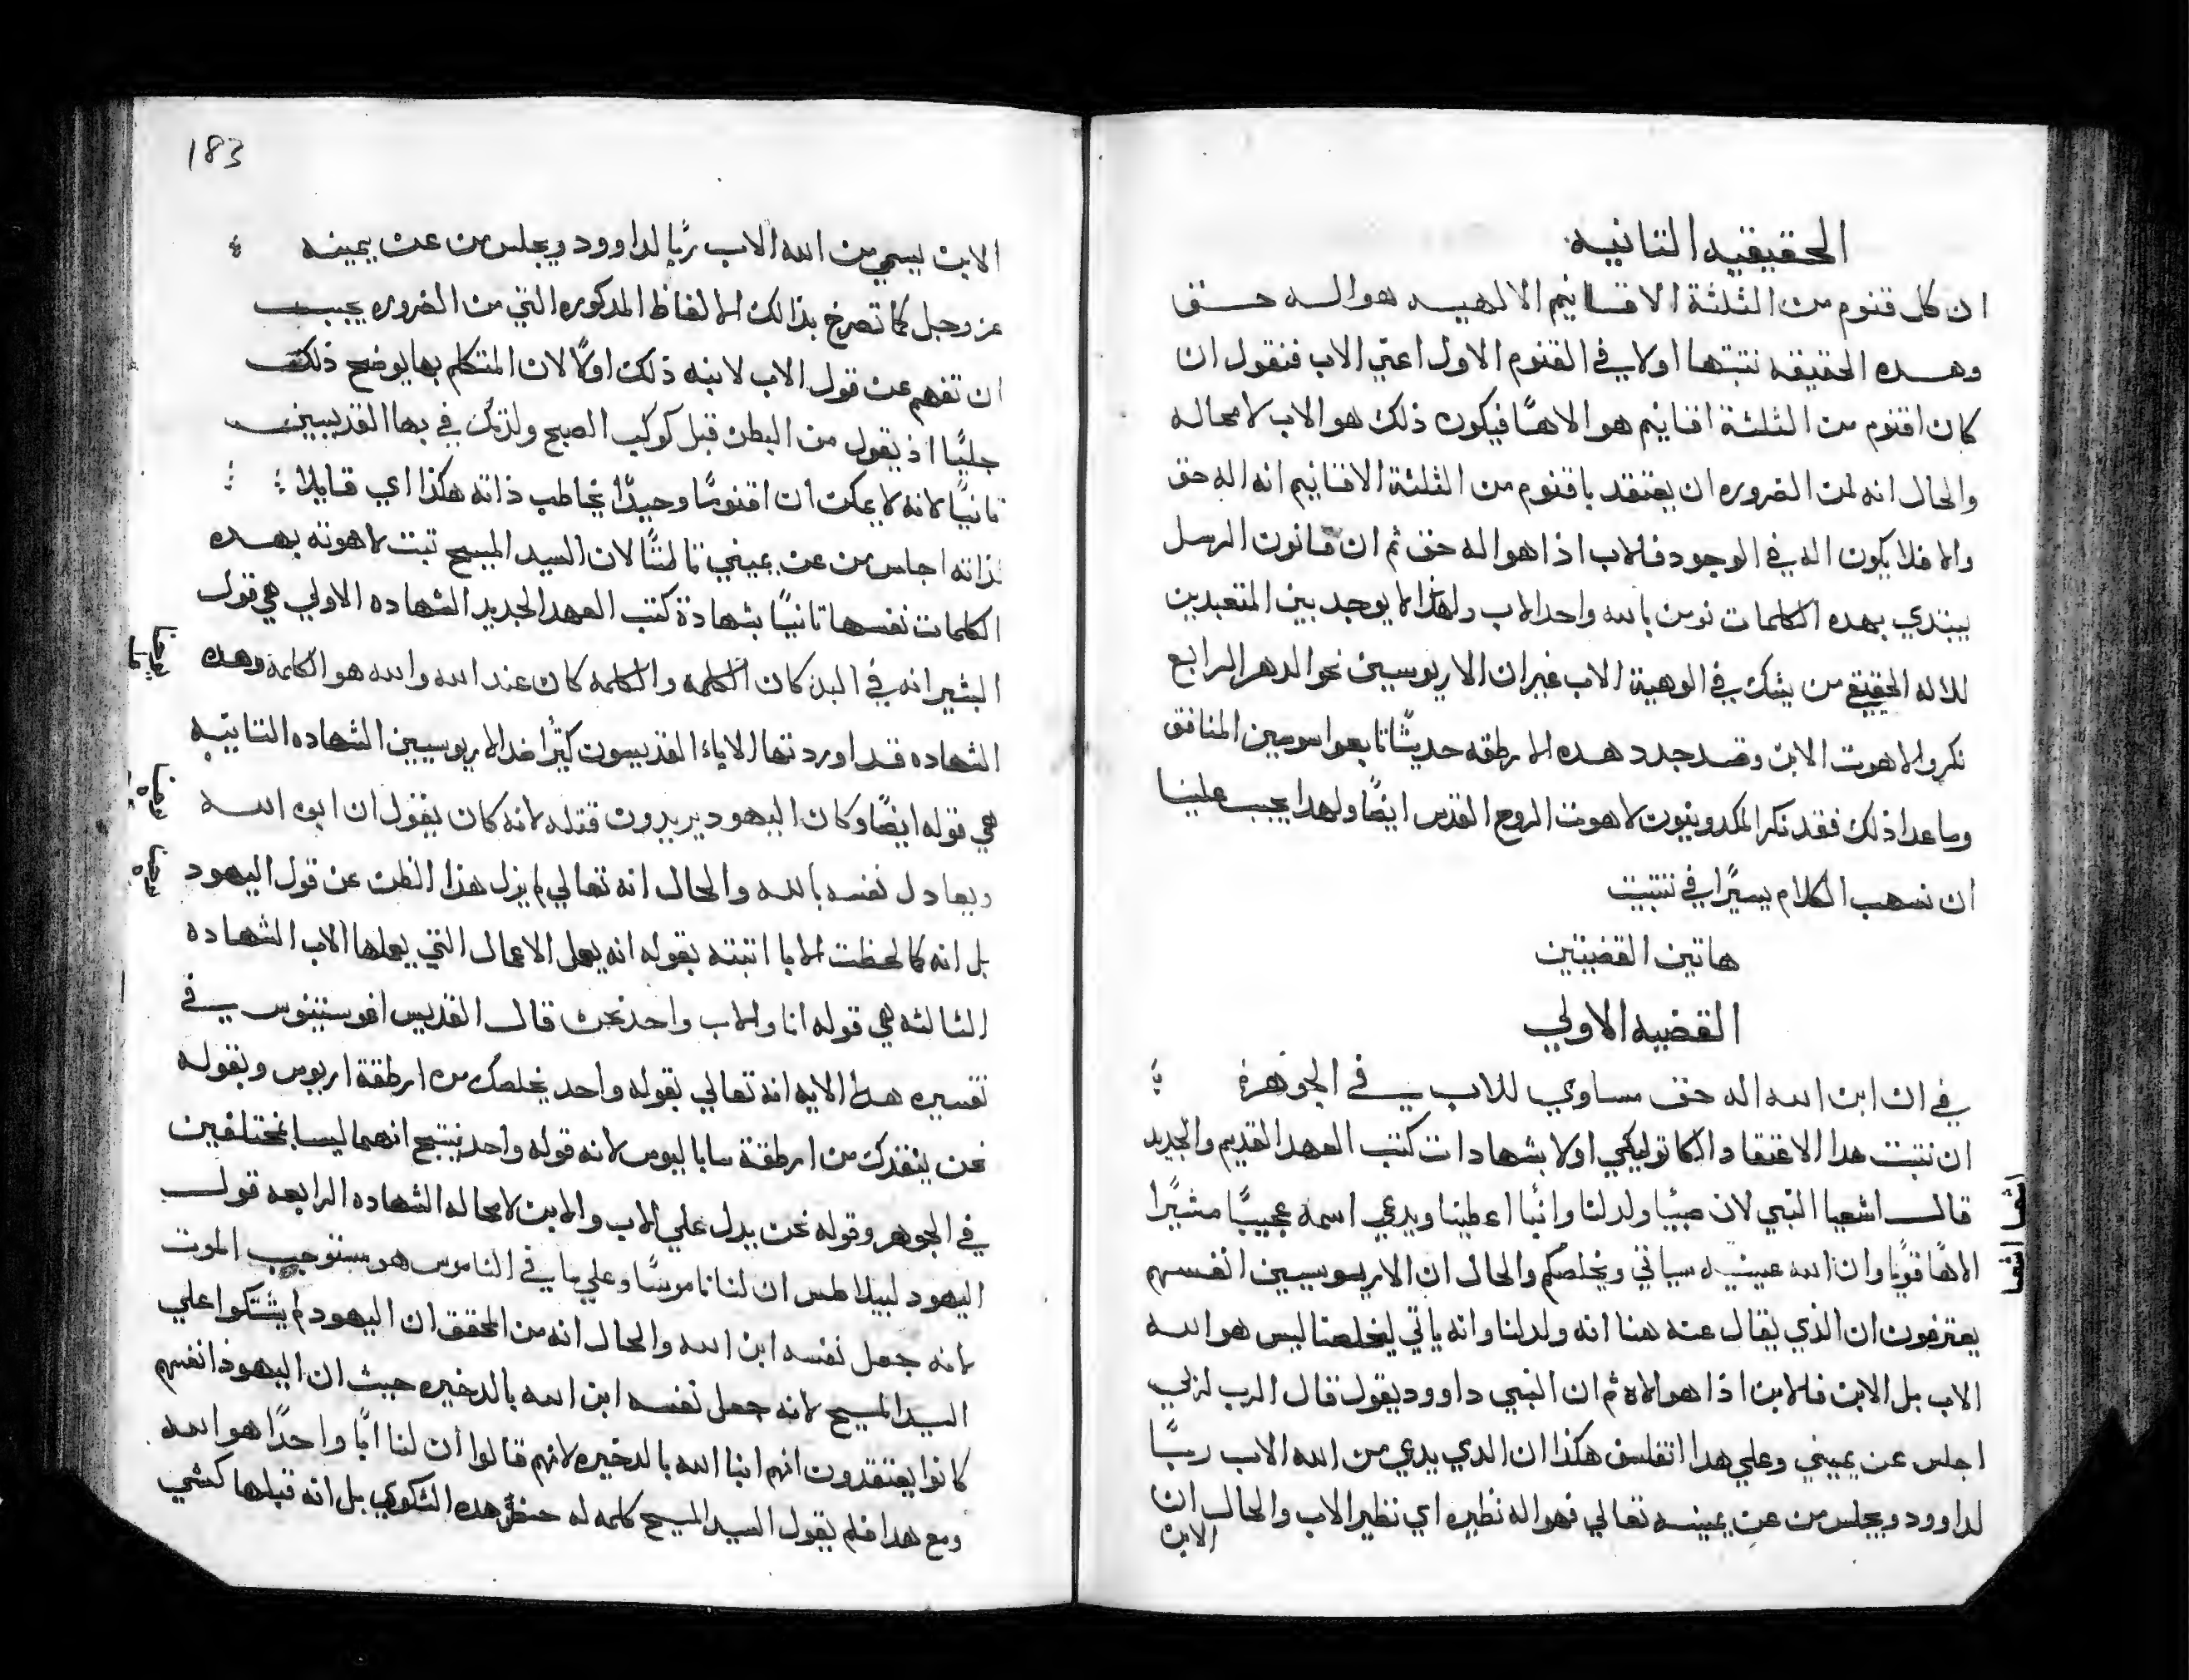 الحقيقيه التانيه
ان كل قنوم من الثلثة الاقسانيم الالهيه هو اله حق
وهده الحقيقه نتبتها اولا في القنوم الاول اعني الاب فنقول ان
كان اقنوم من الثلثة اقانيم هو الاهًا فيكون ذلك هو الاب لا محاله
والحال انه لمن الضروره ان يعتقد باقنوم من الثلثة الاقانيم انه اله حق
والا فلا يكون اله في الوجود فالاب اذا هو اله حق ثم ان قانون الرسل
يبتدي بهده الكلمات نومن بالله واحد الاب ولهذا لا يوجد بين المتعبدين
للاله الحقيقي من يشك في الوهية الاب غير ان الاريوسيين نحو الدهر الرابع
نكروا لاهوت الابن وقد جدد هده الارطقه حديثًا تابعوا سوسين المنافق
وما عدا ذلك فقد نكر المكدونيون لاهوت الروح القدس ايضًا ولهدا يجب علينا
ان نسهب الكلام يسيرًا في تتبيت
هاتين القضيتين
القضيه الاولي
في ان ابن الله اله حق مساوي للاب في الجوهرة
ان نتبت هدا الاعتقاد الكاتوليكي اولا بشهادات كتب العهد القديم والجديد
قال اشعيا النبي لان صبيًا ولد لنا وابنًا اعطينا ويدعي اسمه عجيبًا مشيرًا
الاهًا قويًا وان الله عينه سياتي ويخلصكم والحال ان الاريوسيين انفسهم
يعترفون ان الذي يقال عنه هنا انه ولد لنا وانه ياتي ليخلصنا ليس هو الله
الاب بل الابن فالابن اذا هو الاه ثم ان النبي داوود يقول قال الرب لربي
اجلس عن يميني وعلي هدا اتفلسق هكذا ان الدي يدي من الله الاب ربًا
لداوود ويجلس من عن يمينه تعالي فهو اله نظيره اي نظير الاب والحال ان
الابن
اشعيا
اشعيا
183
الابن يسمي من الله الاب ربًا لداوود ويجلس من عن يمينه
عز وجل كما تصرح بذالك الالفاظ المدكوره التي من الضروره يجب
ان تفهم عن قول الاب لابنه ذلك اولًا لان المتكلم بها يوضح ذلك
جليًا اذ يقول من البطن قبل كوكب الصبح ولدتك في بها القديسين
تانيًا لانه لا يمكن ان اقنومًا وحيدًا يخاطب ذاته هكذا اي قايلا
لذاته اجلس من عن يميني تالتًا لان السيد المسيح تبت لاهوته بهده
الكلمات نفسها تانيًا بشهادة كتب العهد الجديد الشهاده الاولي هي قول
البشير انه في البدء كان الكلمه والكلمه كان عند الله والله هو الكلمه وهده
الشهاده قد اوردتها الاباء القديسون كثيرًا ضد الاريوسيين الشهاده التانيه
هي قوله ايضًا وكان اليهود يريدون قتله لانه كان يقول ان ابوه الله
ويعادل نفسه بالله والحال انه تعالي لم يزل هذا الظن عن قول اليهود
بل انه كما لحظت الابا اتبته بقوله انه يعمل الاعمال التي يعملها الاب الشهاده
الثالثه هي قوله انا والاب واحد نحن قال القديس اغوستينوس في
تفسيره هدا الايه انه تعالي بقوله واحد يخلصك من ارطقة اريوس وبقوله
نحن ينقدك من ارطقة ساباليوس لانه قوله واحد ينتج انهما ليسا بمختلفين
في الجوهر وقوله نحن يدل علي الاب والابن لا محاله الشهاده الرابعه قول
اليهود لبيلاطس ان لنا ناموسًا وعلي ما في الناموس هو مستوجب الموت
لانه جعل نفسه ابن الله والحال انه من المحقق ان اليهود لم يشتكوا علي
السيد المسيح لانه جعل نفسه ابن الله بالدخيره حيث ان اليهود انفسهم
كانوا يعتقدون انهم ابنا الله بالدخيره لانهم قالوا ان لنا ابًا واحدًا هو الله
ومع هدا فلم يقول السيد المسيح كلمه له ضد هده الشكوي بل انه قبلها كشي
يوحنا
يوحنا
يوحنا